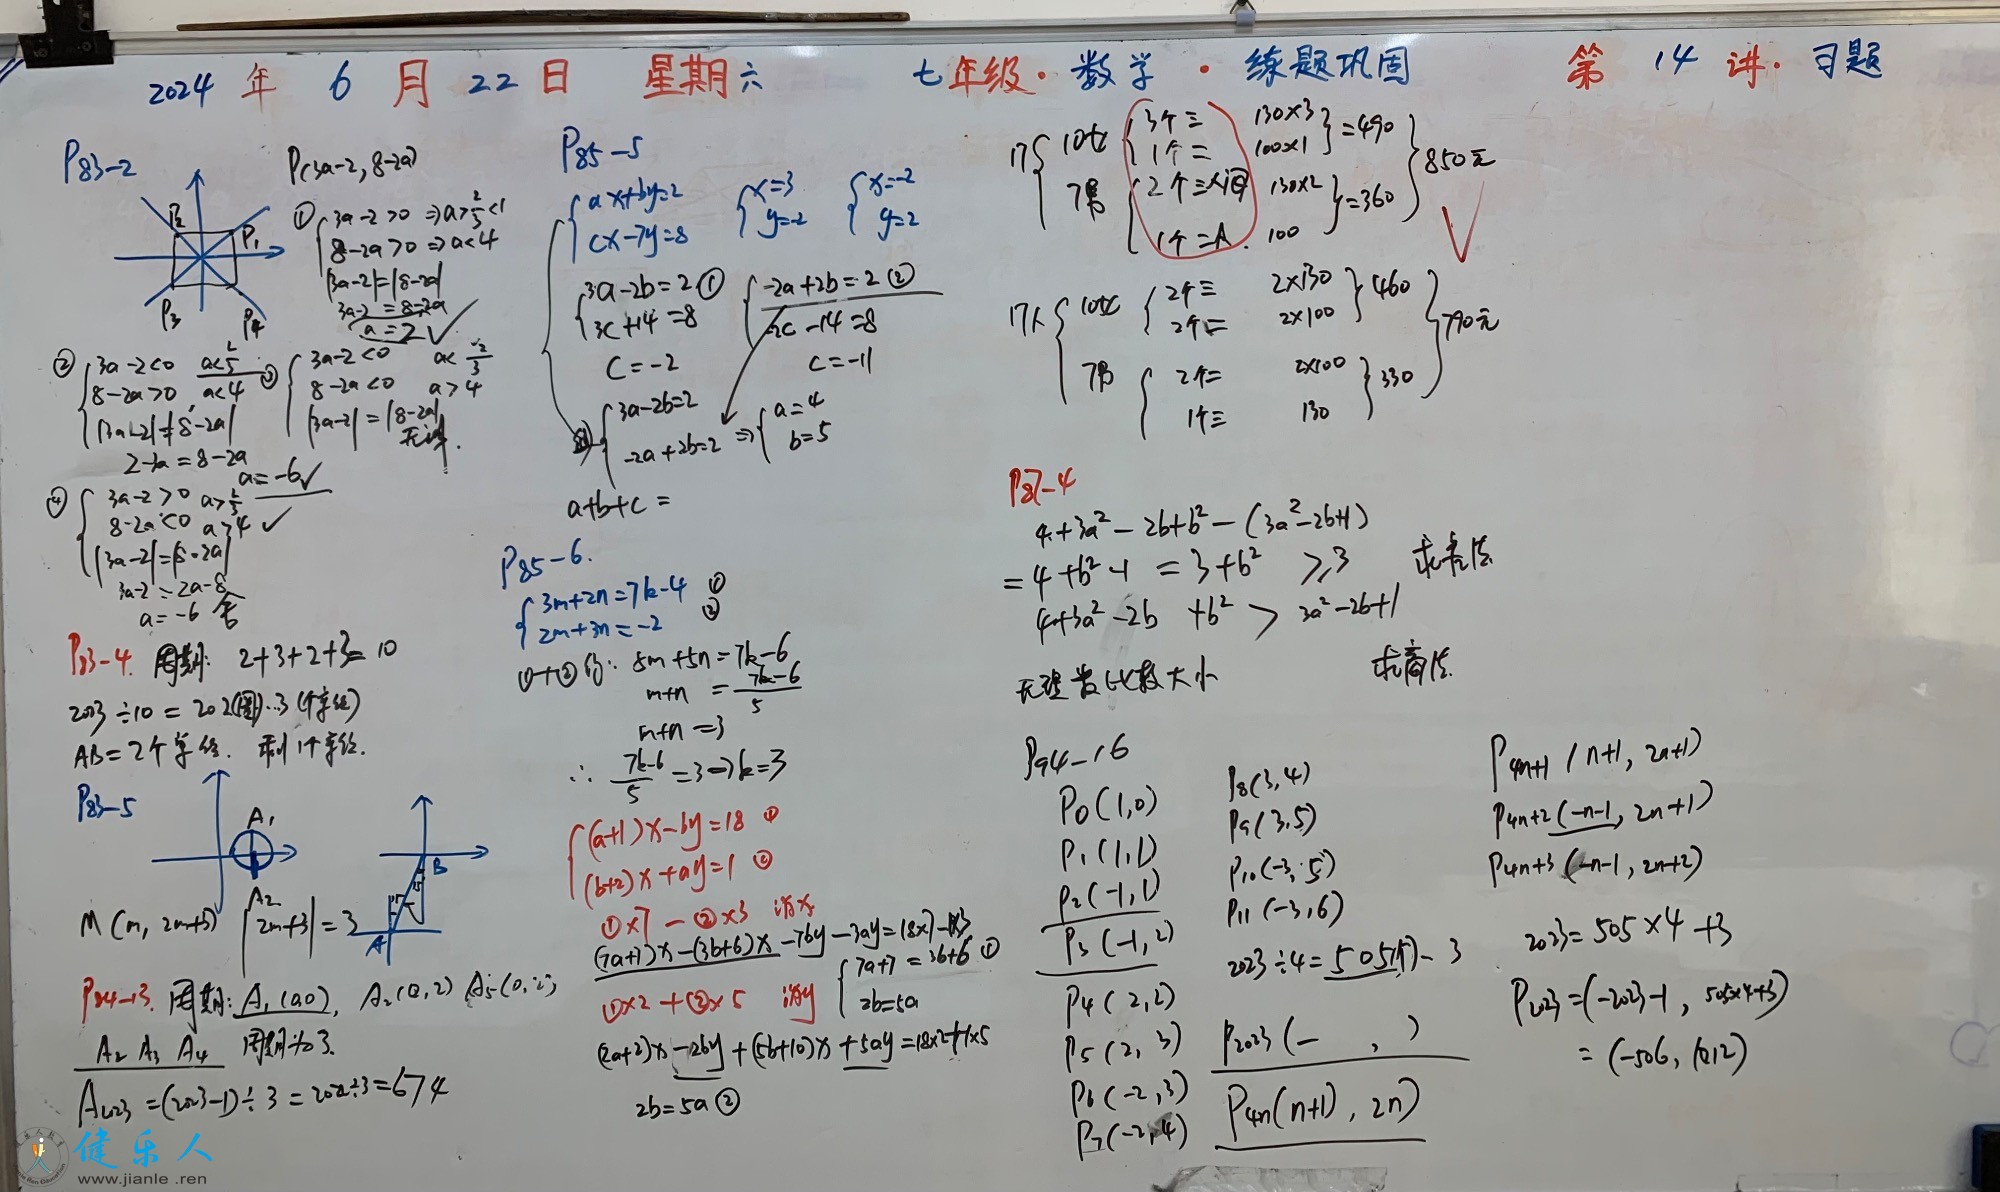 2024 年 6 月 22 日 星期六 七年级·数学·练题巩固 第 14 讲·习题
P83-2
P(3a-2, 8-2a)
P2
P1
P3
P4
①
3a-2>0
8-2a>0 ⇒a<4
|3a-2|=|8-2a|
3a-2=8-2a
a=2✓
②
3a-2<0
8-2a>0 a<4
2-3a=8-2a
a=-6✓
③
3a-2<0 a<
8-2a<0 a>4
|3a-2|=|8-2a|
④
3a-2>0
8-2a<0 a>4 ✓
|3a-2|=|8-2a|
3a-2=2a-8
a=-6 舍
P83-4. 周期: 2+3+2+3=10
2023÷10=202(周)..3(个单位)
AB=2个单位. 剩1个单位.
P83-5
A1
A2
B
A
M(m, 2m+3) |2m+3|=3
P84-13. 周期: A1(a,0), A2(0,2)
A2 A3 A4 周期为3.
A2023=(2023-1)÷3=2022÷3=674
P85-5
ax+by=2
cx-7y=8
x=3
y=-2
x=-2
y=2
3a-2b=2①
3c+14=8
c=-2
-2a+2b=2②
-2c-14=8
c=-11
3a-2b=2
-2a+2b=2
⇒ a=4
b=5
a+b+c=
P85-6.
3m+2n=7k-4 ①
2m+3n=-2 ②
①+②得: 5m+5n=7k-6
m+n = 7k-6/5
m+n=3
∴ 7k-6/5=3⇒k=3
(a+1)x-by=18 ①
(b+2)x+ay=1 ②
①×7-②×3 消x
(7a+7)x-(3b+6)x-7by-3ay=18×7-1×3
7a+7=3b+6 ①
2b=5a
①×2+②×5 消y
(2a+2)x-2by+(5b+10)x+5ay=18×2+1×5
2b=5a②
17 10女 3个三 130×3
1个二 100×1 =490
7男 2个三人间 130×2 =360
1个二人. 100
850元
17人 10女 2个三 2×130
2个二 2×100 460
7男 2个二 2×100
1个三 130 330
790元
P87-4
4+3a²-2b+b²-(3a²-2b+1)
=4+b²-1=3+b² ≥3 求差法
4+3a²-2b+b² > 3a²-2b+1
无理数比较大小 求商法.
P94-16
P0(1,0)
P1(1,1)
P2(-1,1)
P3(-1,2)
P4(2,2)
P5(2,3)
P6(-2,3)
P7(-2,4)
P8(3,4)
P9(3,5)
P10(-3,5)
P11(-3,6)
2023÷4=505(周)-3
P2023(- , )
P4n(n+1), 2n)
P4n+1(n+1, 2n+1)
P4n+2(-n-1, 2n+1)
P4n+3(-n-1, 2n+2)
2023=505×4+3
P2023=(-2023-1,
=(-506, 1012)
健乐人
www.jianle.ren